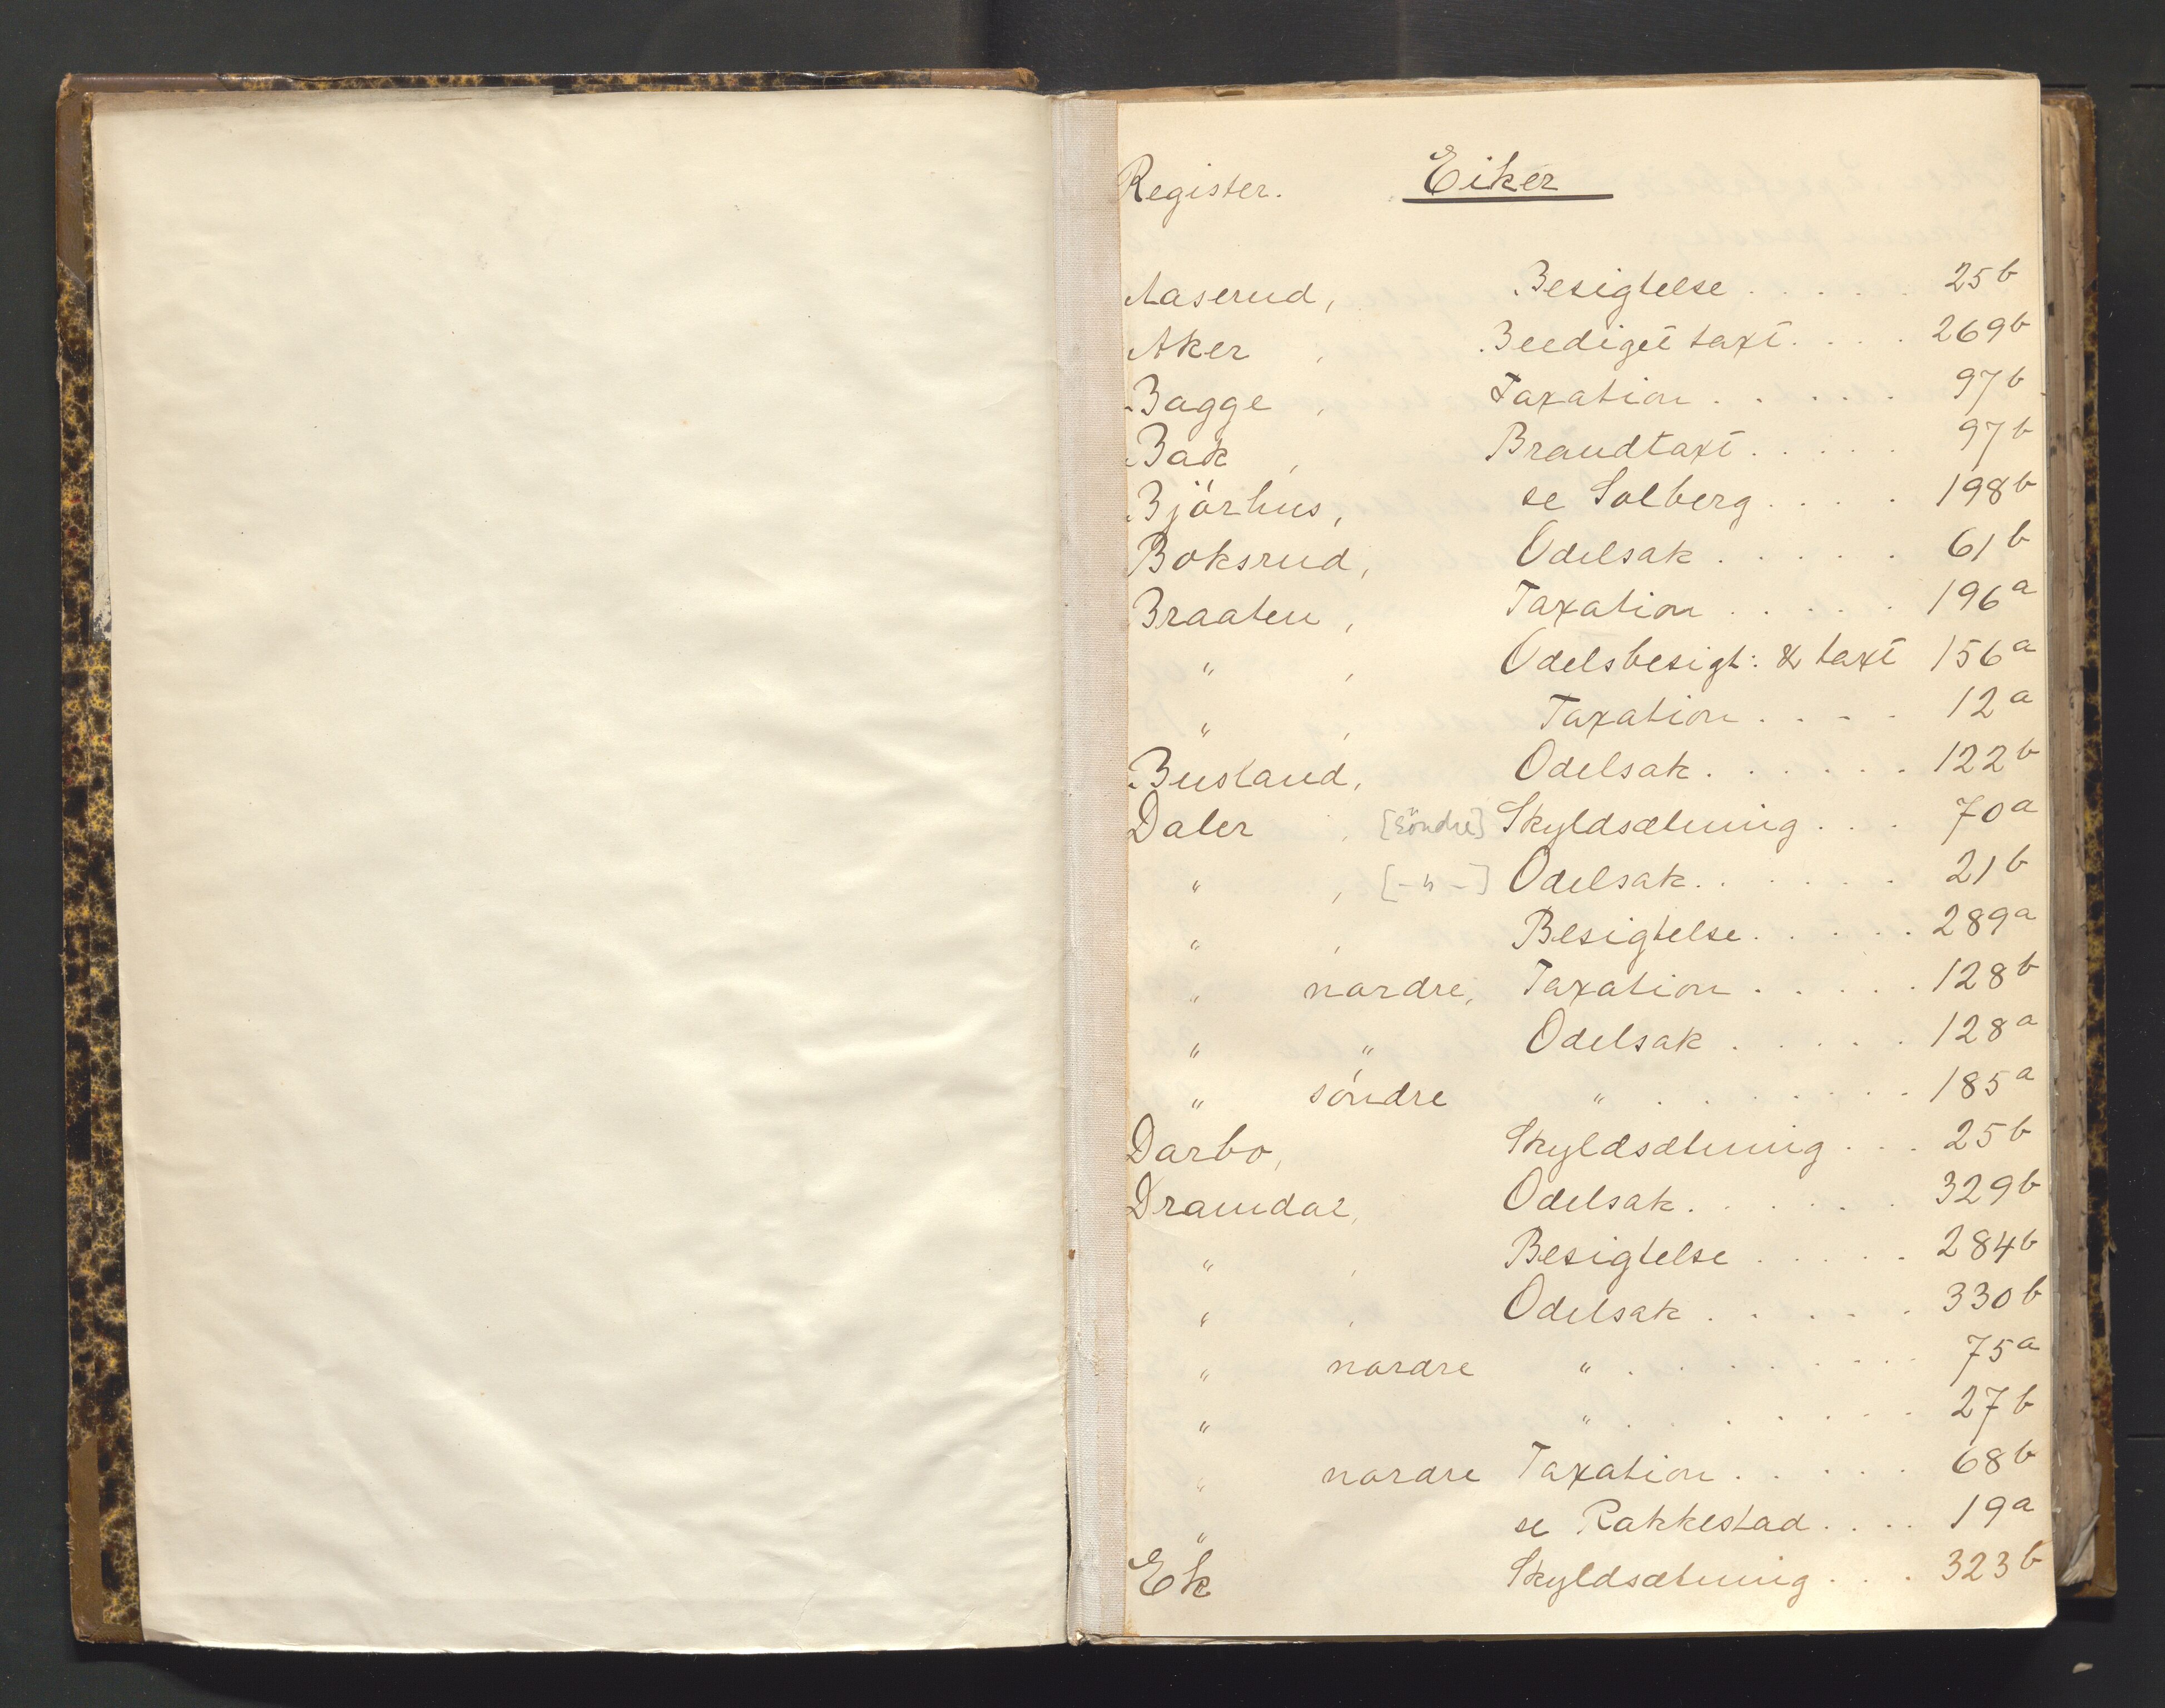 Register. Eiker
Aaserud, Besigtelse . . . . . 25b
Aker , Beediget taxt . . . . 269b
Bagge , Taxation . . . . . 97b
Bak , Brandtaxt . . . . . 97b
Bjørhus, se Solberg . . . . 198b
Boksrud, Odelsak . . . . . 61b
Braaten , Taxation . . . . . 196a
" , Odelsbesigt: & taxt 156a
" , Taxation . . . . 12a
Busland, Odelsak . . . . . . 122b
Daler , [søndre] Skyldsætning . . . 70a
" , [-"-] Odelsak . . . . . . 21b
" , Besigtelse . . . . . 289a
" nordre, Taxation . . . . . 128b
" " Odelsak . . . . . 128a
" søndre " . . . . . . . 185a
Darbo, Skyldsætning . . . 25b
Dramdal, Odelsak . . . . . . 329b
" , Besigtelse . . . . . 284b
" , Odelsak . . . . . 330b
" nordre " . . . . . . . 75a
" " . . . . . . . 27b
" nordre Taxation . . . . . 68b
" se Rakkestad . . . . 19a
Ek Skyldsætning . . . 323b